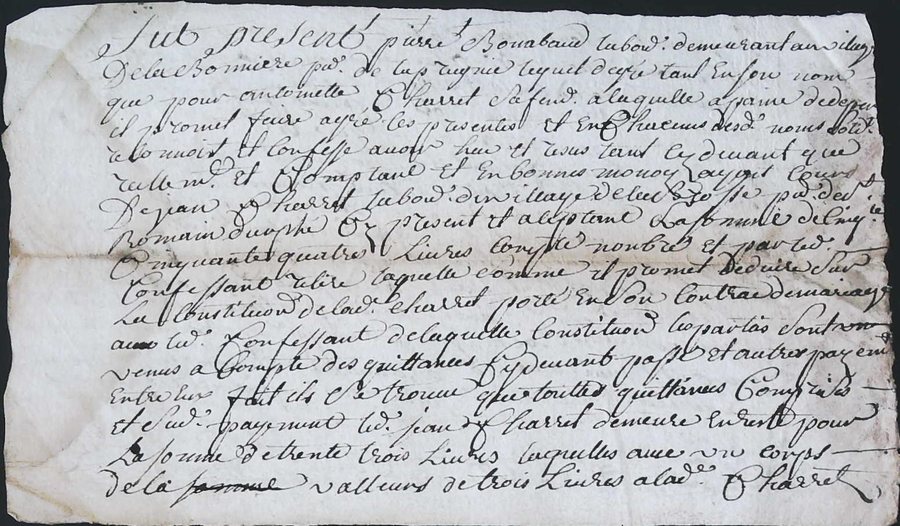 fut present pierre Bonabaud labour. demeurant au village
De la Bonniere par. de la prugnie lequel de gre tant en son nom
que pour antoinette Charret sa fem. a laquelle a paine de depens
il promet feire agre les presentes et en Chacuns desd. noms
reconnoist et Confesse avoir heu et resus tant Cydevant que
reellem. et Comptant et en bonnes monoy ayant Cours
De jean Charret labour. du village de par. de st
Romain durphe Cy present et aceptant La somme de
Cinquante quatres Livres Compte nombre et par led.
Confessant retire laquelle somme il promet deduire sur
La Constitution de lad. Charret porte en son Contrac de mariage
avec led. Confessant de laquelle Constitution les partis sont
venus a Compte des quittances Cydevant passe et autres payem
Entre eux fait ils se trouve que toutes quittances Comprises
et sud. payement led. jean Charret demeure en reste pour
La somme de trente trois Livres laquelles avec un corps
de la somme valleurs de trois Livres a lad. Charret